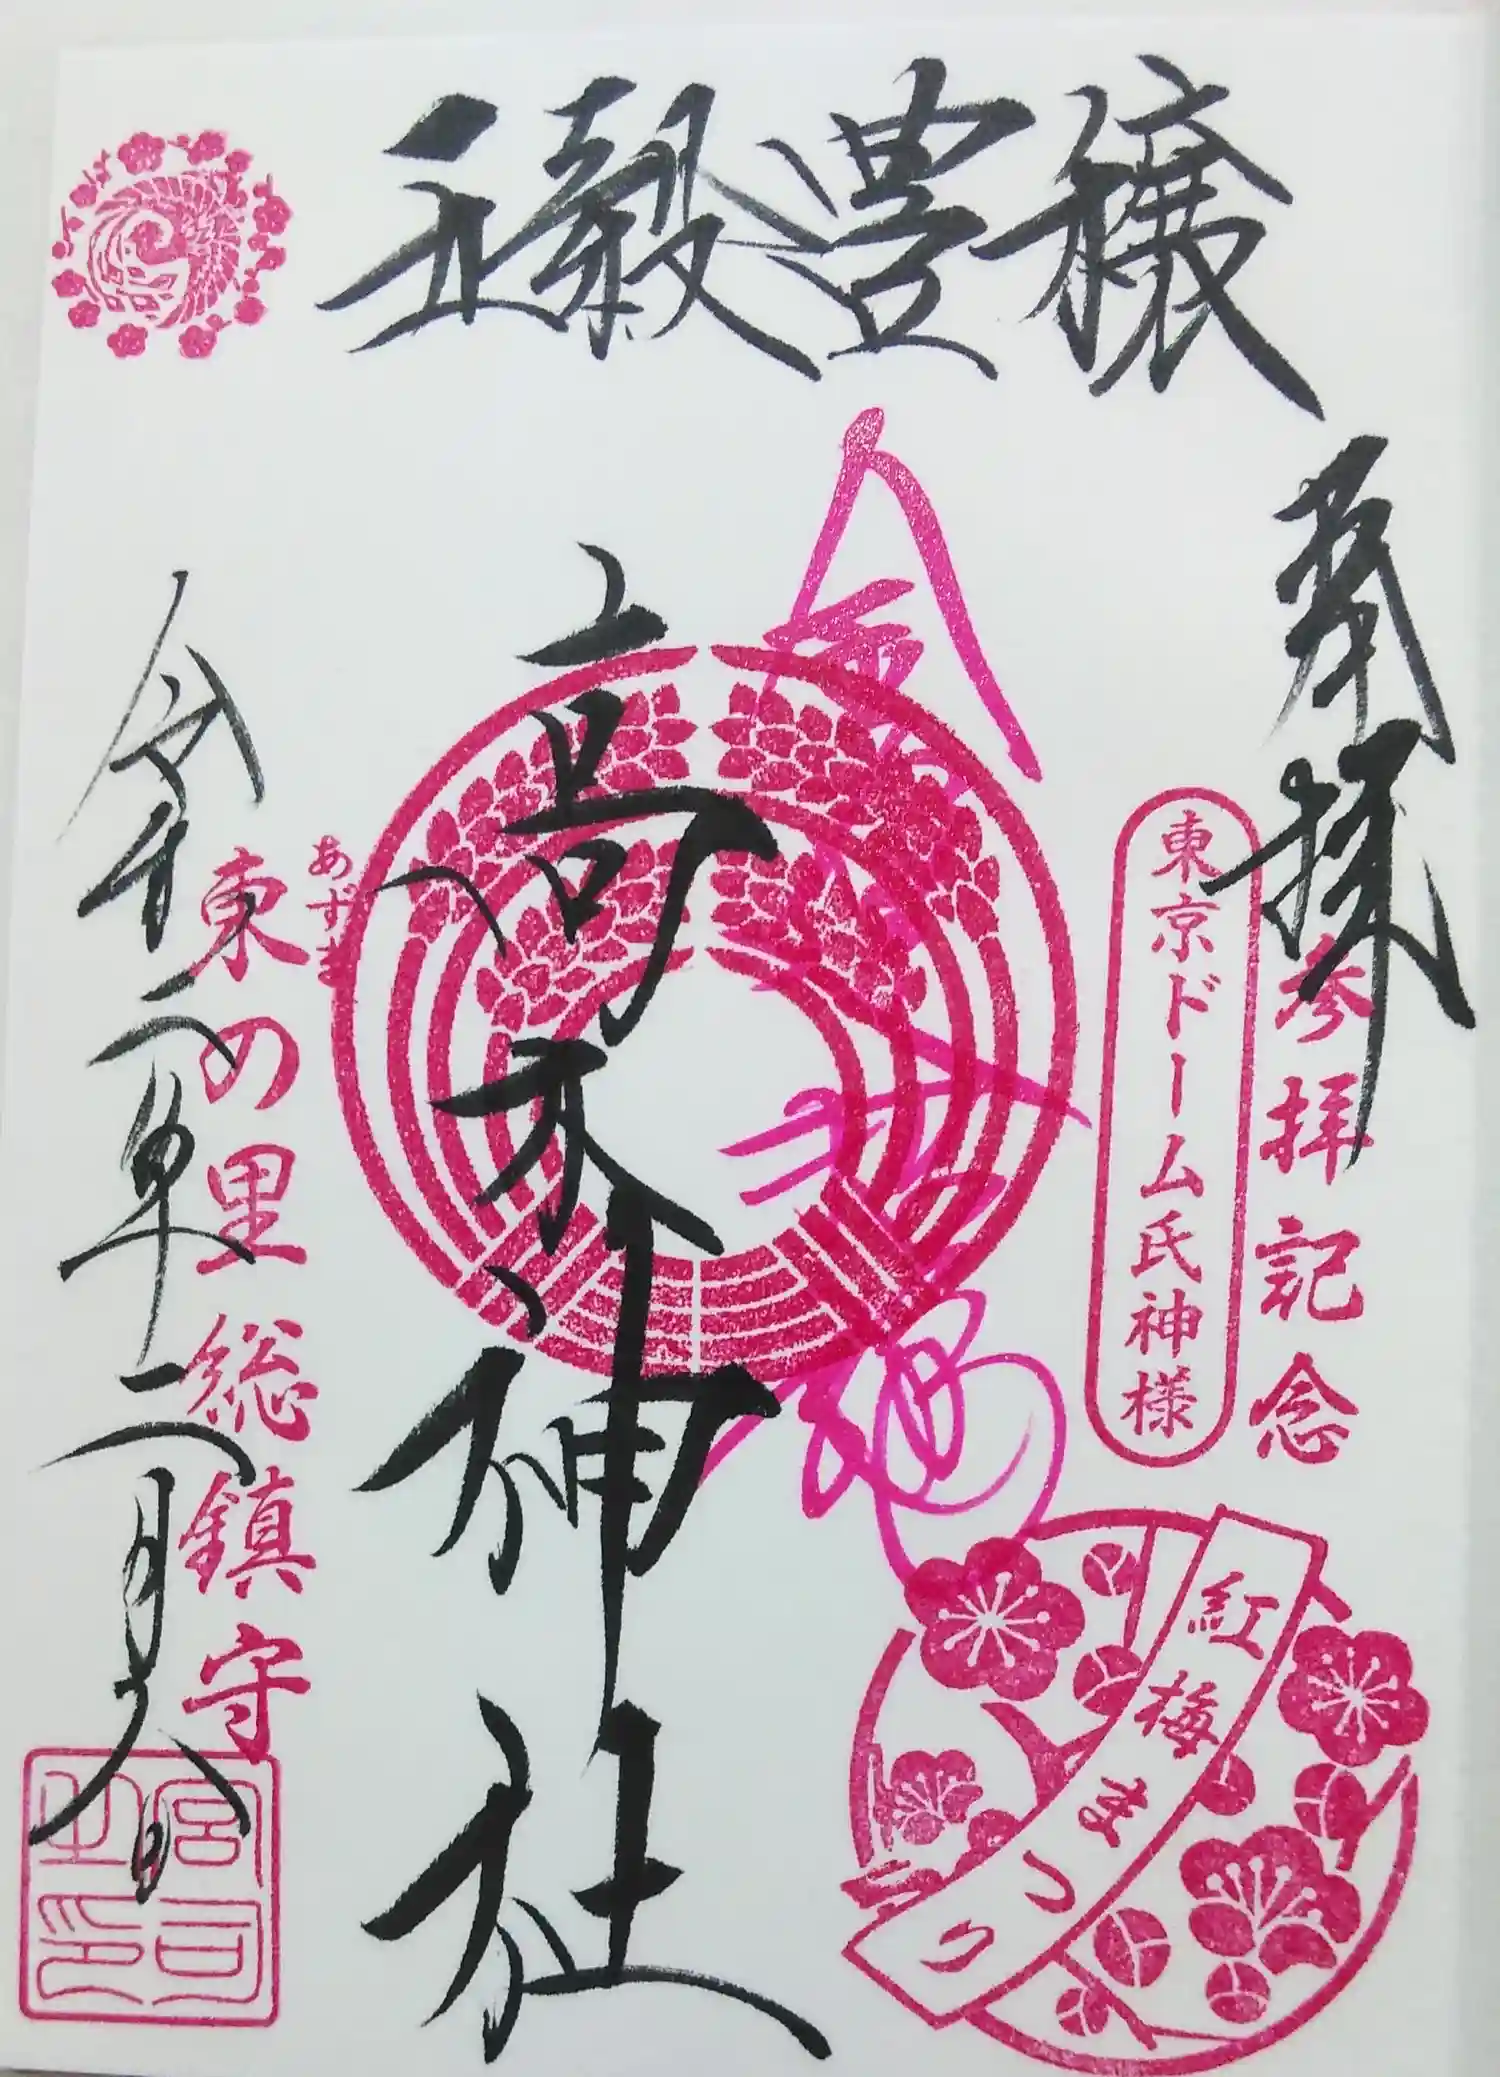 五穀豊穣
奉拝
参拝記念
東京ドーム氏神様
高木神社
あずま
東の里総鎮守
令和二年二月八日
紅梅まつり
宮司之印